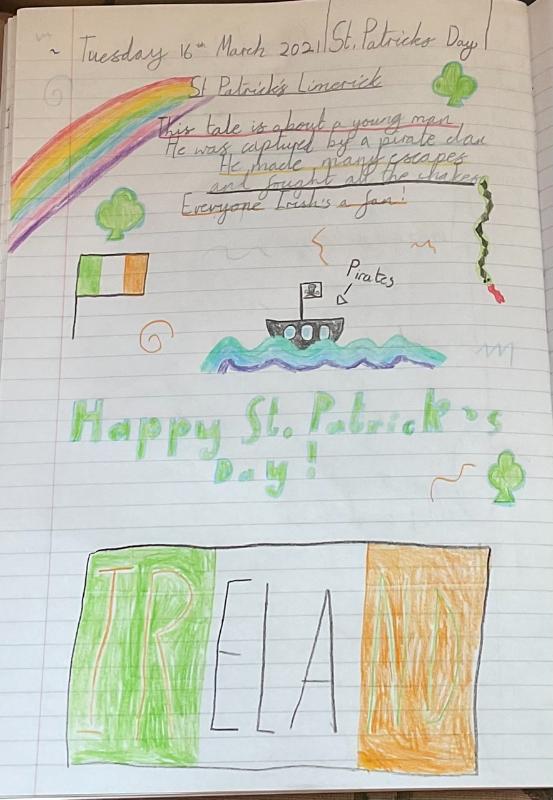 Tuesday 16th March 2021 St. Patricks Day
St Patrick's Limerick
This tale is about a young man
He was captured by a pirate clan
He made many escapes
and fought all the snakes
Everyone Irish's a fan!
Pirates
Happy St. Patrick's
Day!
IRELAND